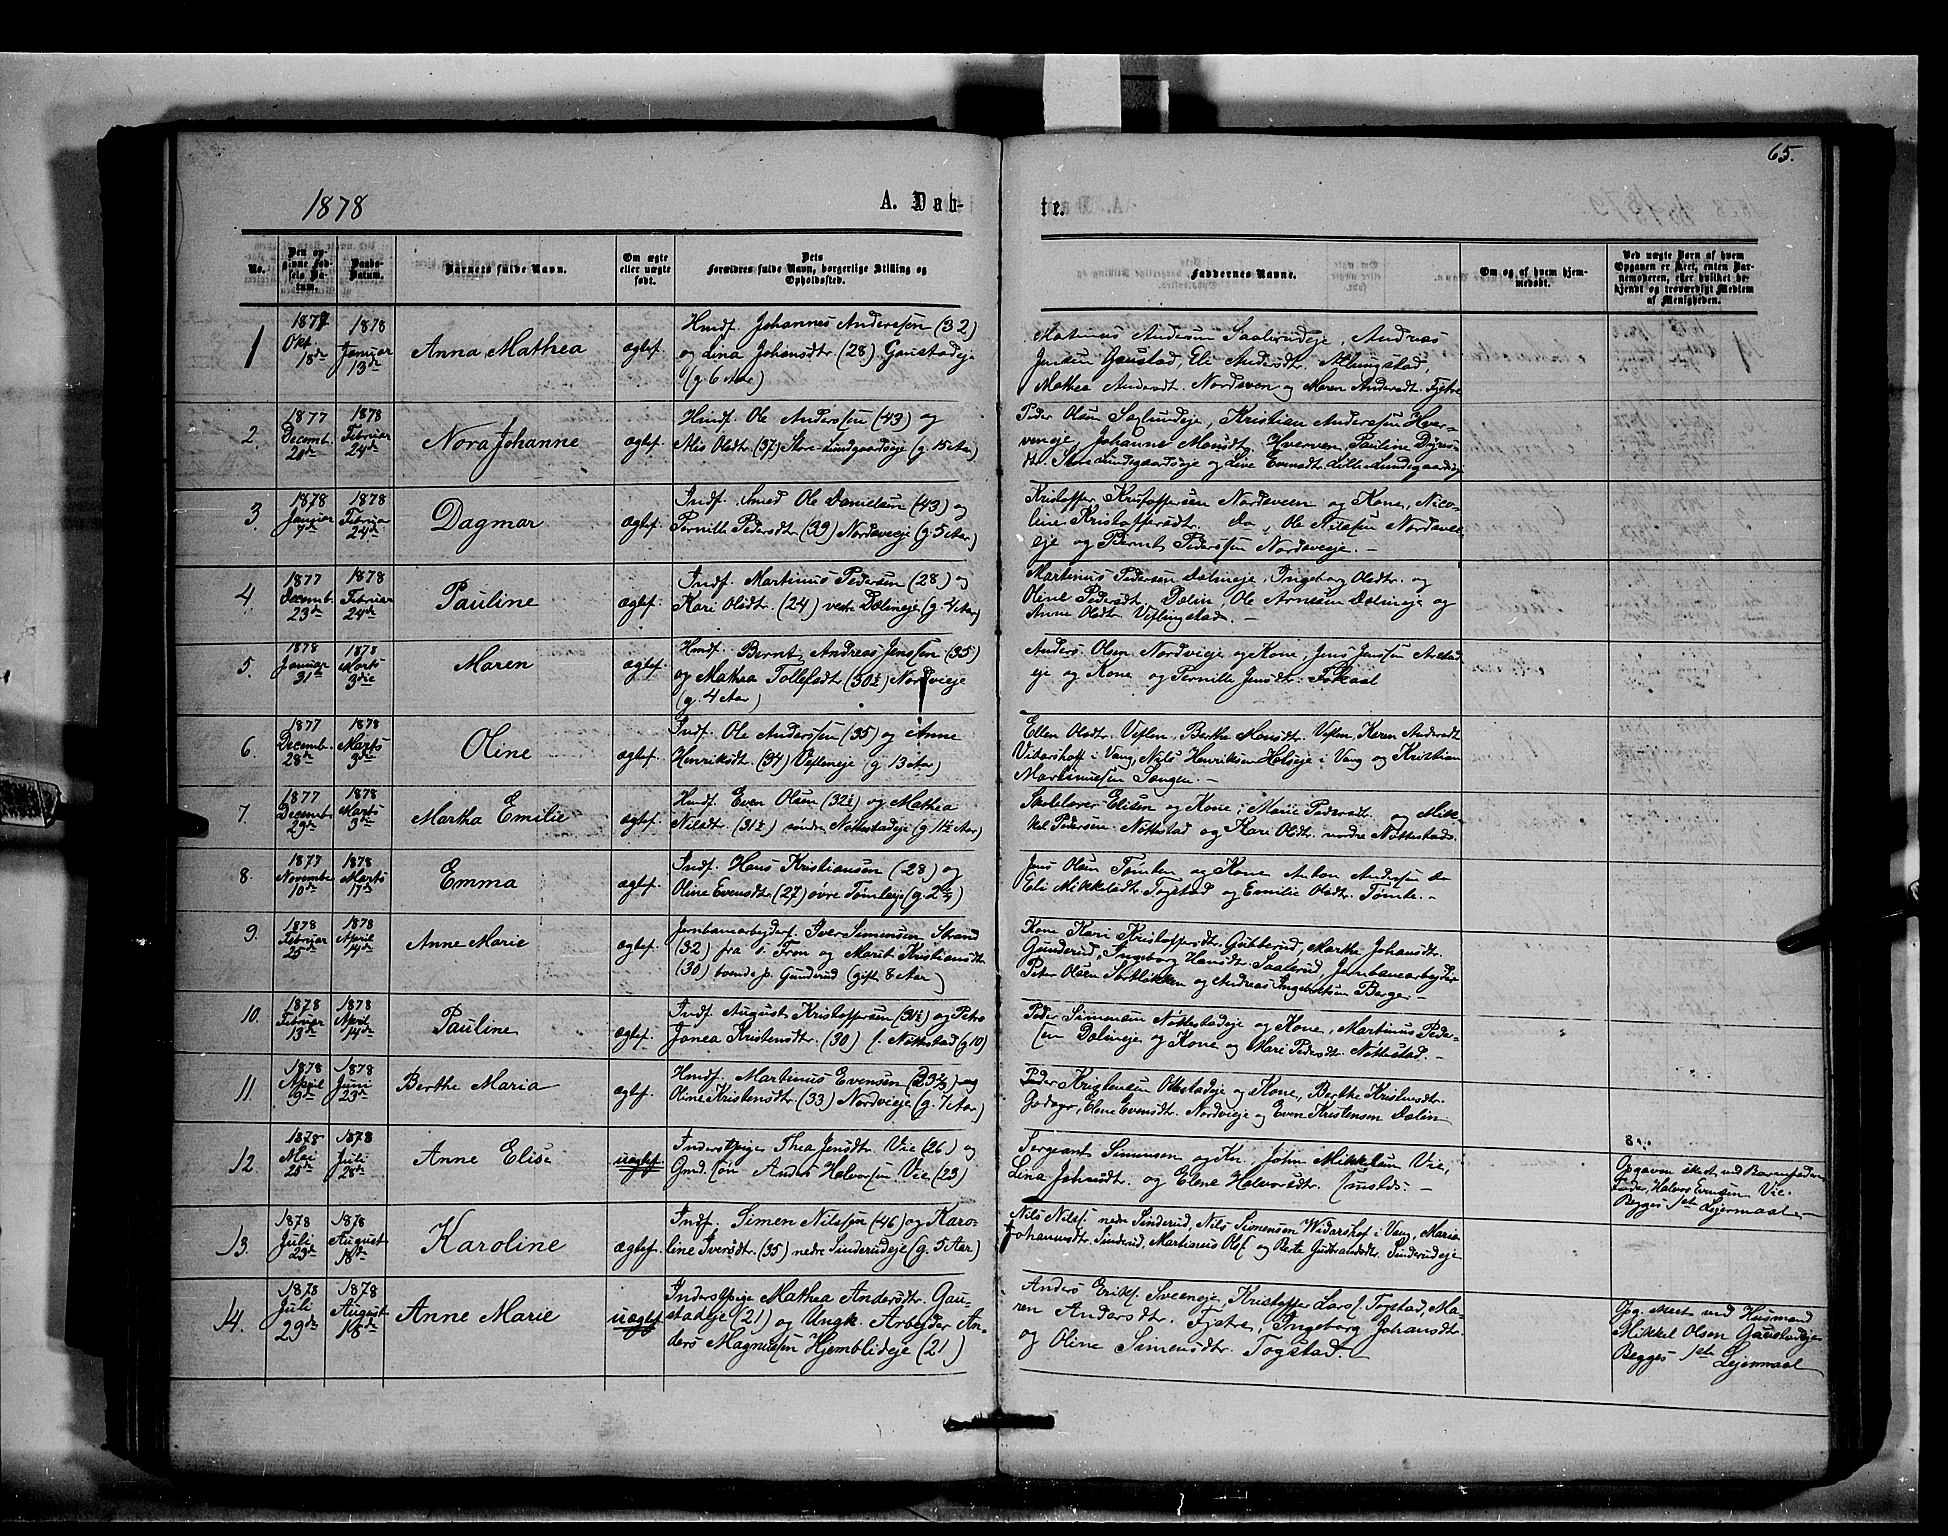 65.
1878
A. Døb-
te.
No.
Den op-
givne Fød-
sels Da-
tum.
Daabs-
Datum.
Barnets fulde Navn.
Om ægte
eller uægte
født.
Dets
Forældres fulde Navn, borgerlige Stilling og
Opholdssted.
Faddernes Navne.
Om og af hvem hjem-
medøbt.
Ved uægte Børn af hvem
Opgaven er skeet, enten Bar-
nemoderen, eller hvilket be-
kjendt og troværdigt Medlem
af Menigheden.
1
1877
Okt.
18de
1878
Januar
13de
Anna Mathea
ægtef.
Hmdf. Johannes Anderssen (32)
og Lina Johansdtr. (28) Gaustadeje
(g. 6 Aar)
Matinus Andersen Saalerudeje, Andreas
Jensen Gaustad, Eli Andersdtr. Alhungstad,
Mathea Andersdt. Nordsveen og Maren Andersdt. Fjetre
2.
1877
Decemb.
20de
1878
Februar
24de
Nora Johanne
ægtef.
Hmdf. Ole Anderssen (43) og
Alis Olsdtr. (37) Store-Lundgaardseje (g. 15 Aar)
Peder Olsen Saxlundeje, Kristian Anderssen Hver-
veneje, Johanne Monsdt. Hverven, Pauline Dyres-
dtr. Store Lundsgaardseje og Line Evensdtr. Lille Lundsgaardseje
3.
1878
Januar
7de
1878
Februa
24de
Dagmar
ægtef.
Indf. Smed Ole Danielsen (43) og
Pernille Pedersdtr. (39) Nordvieje (g. 5 Aar)
Kristoffer Kristoffersen Nordsveen og Kone, Nico-
line Kristoffersdtr. do, Ole Nilssen Nordsve-
eje og Bernt Pederssen Nordvieje. -
4.
1877
Decemb.
23de
1878
Februar
24de
Pauline
ægtef.
Indf. Martinus Pedersen (28) og
Kari Olsdtr. (24) vestre Dælineje (g. 4 Aar)
Martinus Pedersen Dælineje, Ingeborg Olsdtr. og
Oline Pedersdt. Dælin, Ole Arnesen Dælineje og
Anne Olsdt. Veflingstad. -
5.
1878
Januar
31te
1878
Marts
3die
Maren
ægtef.
Hmdf. Bernt Andreas Jenssen (35)
og Mathea Tollefsdtr. (30½) Nordvieje
(g. 4 Aar)
Anders Olsen Nordvieje og Kone, Jens Jenssen Arstad
eje og Kone og Pernille Jensdtr. Fokaal
6.
1877
Decemb.
28de
1878
Marts
3die
Oline
ægtef.
Indf. Ole Anderssen (35) og Anne
Henriksdt. (34) Vefleneje (g. 13 Aar)
Ellen Olsdtr. Veflen, Berthe Monsdtr. Veflen, Karen Andersdt.
Vidarshoff i Vang, Nils Henriksen Holseje i Vang og Kristian
Martinussen Sangen. -
7.
1877
Decembr.
29de
1878
Marts
3die
Martha Emilie
ægtef.
Hmdf. Even Olsen (32½) og Mathea
Nilsdtr. (31½) søndre Nøttestadeje (g. 11½ Aar)
Skolelærer Elisen og Kone Marie Pedersdt. og Mik-
kel Pedersen Nøttestad og Kari Olsdtr. nordre Nøttestad.
8.
1877
Novembr.
10de
1878
Marts
17de
Emma
ægtef.
Indf. Hans Kristiansen (28) og
Oline Evensdtr. (27) øvre Tømteeje (g. 2½)
Jens Olsen Tømten og Kone Anton Anderssen do
Eli Mikkelsdtr. Togstad og Emilie Olsdt. Tømte. -
9.
1878
Februar
25de
1878
April
14de
Anne Marie
ægtef.
Jernbanearbejderf. Iver Simensen Strand
(32) fra s. Fron og Marit Kristiansdtr
(30) boende p. Gunderud (gift 8 Aar)
Kone Kari Kristoffersdtr. Gubberud, Marthe Johansdt.
Gunderud, Ingeborg Hansdt. Saalerud, Jernbanearbejder
Peter Olsen Sortløkken og Andreas Ingebretsen Berger -
10.
1878
Februar
13de
1878
April
14de
Pauline
ægtef.
Indf. August Kristoffersen (31½) og Petro
Janea Kristensdtr. (30) s. Nøttestad (g 10)
Peder Simensen Nøttestadeje og Kone, Martinus Peder-
sen Dælineje og Kone og Mari Pedersdt. Nøttestad. -
11.
1878
April
19de
1878
Juni
23de
Berthe Maria
ægtef.
Hmdf. Martinus Evensen (33⅔) og
Oline Kristensdtr. (33) Nordvieje (g. 7 Aar)
Peder Kristensen Ottestadeje og Kone, Berthe Kristensdtr.
Elene Evensdtr. Nordvieje og Even Kristensen Dælin
12.
1878
Mai
25de
1878
Juli
28de
Anne Elise
uægtef.
Inderstpige Thea Jensdt. Vie (26) og
Gmd. søn Anders Halvorsen Vie (23)
Sergeant Simensen og Kn. John Mikkelsen Vie,
Lina Johansdtr. og Elene Halvorsdtr.
Opgaven skeet ved Barnefaderens
Fader, Halvor Evensen Vie.
Begges 1ste Lejermaal -
13.
1878
Juli
23de
1878
August
18de
Karoline
ægtef.
Indf. Simen Nilssen (46) og Karo-
line Iversdtr. (35) nedre Sinderudeje (g. 5 Aar)
Nils Nilsf. nedre Sinderud, Nils Simensen Widarshof i Vang, Maria
Johannesdtr. Sinderud, Martianus Olsf. og Berte Gudbrandsdtr. Sinderudeje
14.
1878
Juli
29de
1878
August
18de
Anne Marie
uægtef.
Inderstpige Mathea Andersdtr. Gau-
stadeje (21) og Ungk. Arbejder An-
ders Magnussen Hjemblideje (21)
Anders Eriks. Sveeneje, Kristoffer Larss. Togstad, Ma-
ren Andersdt. Fjetre, Ingeborg Johansdt.
og Oline Simensdtr. Togstad. -
Opg. skeet ved Husmand
Mikkel Olsen Gaustadeje
Begges 1ste Lejermaal